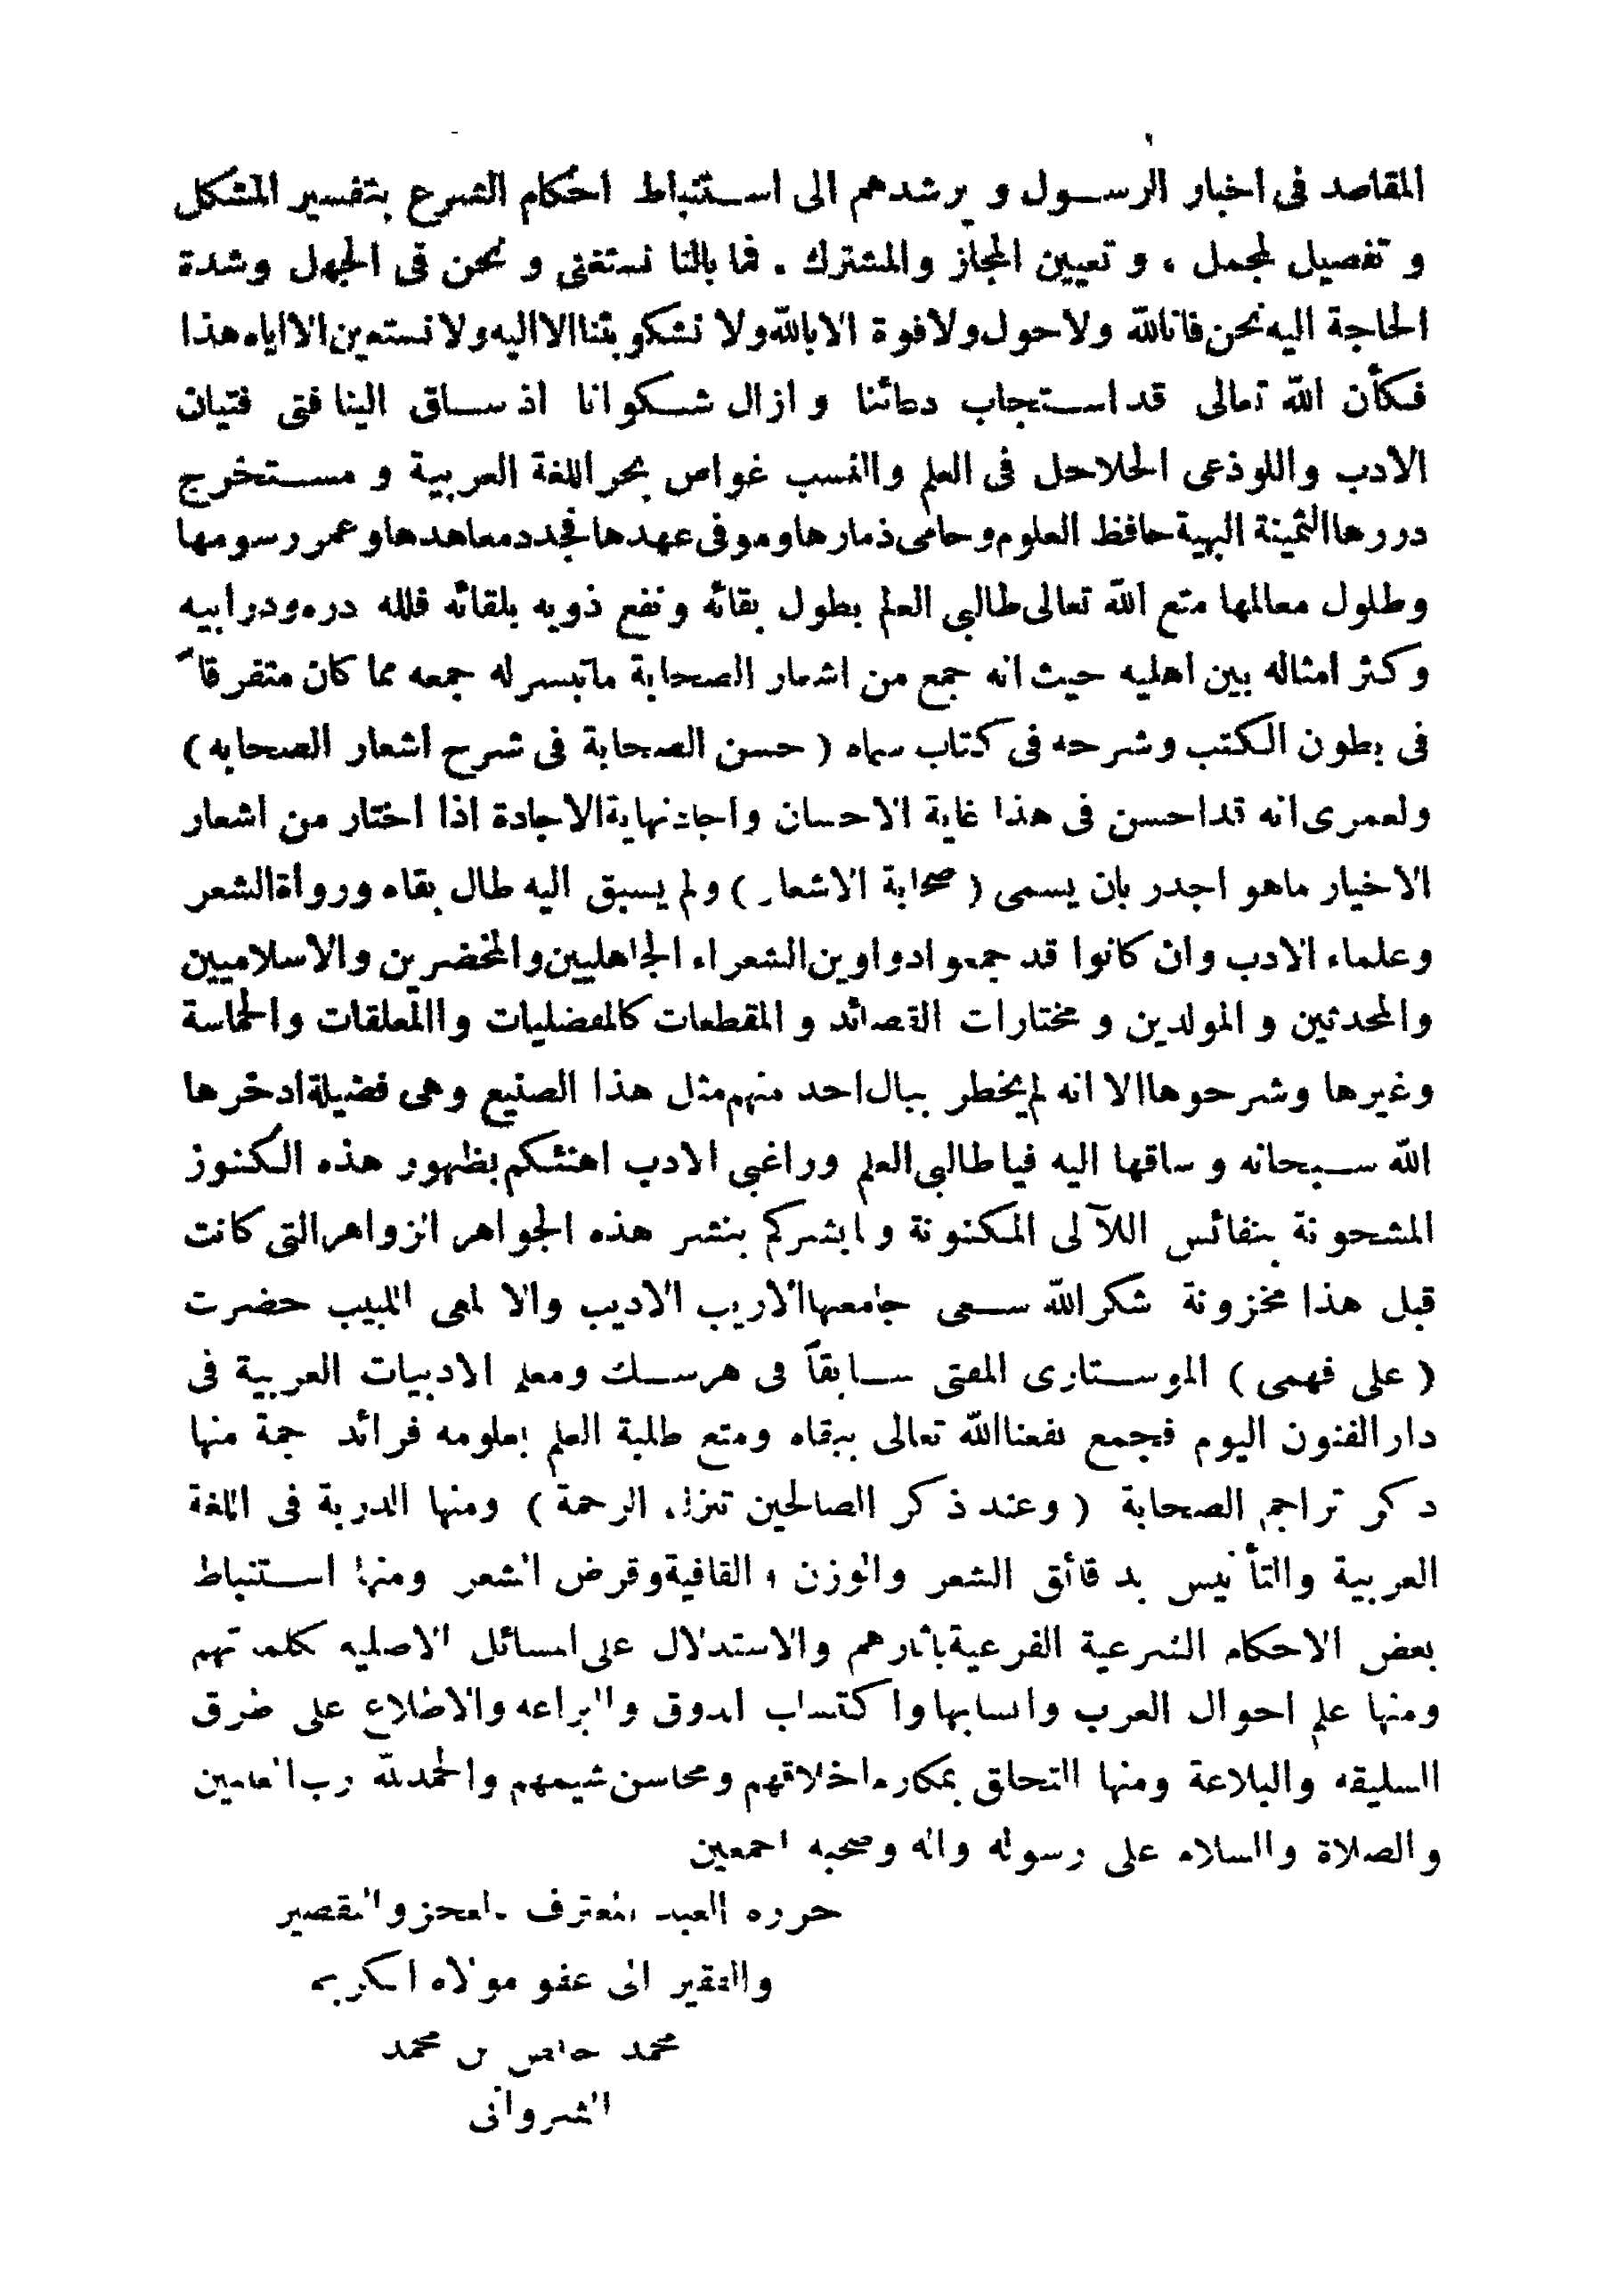 المقاصد فى اخبار الرسول و يرشدهم الى استنباط احكام الشرع بتفسير المشكل
و تفصيل لمجمل ، و تعيين المجاز والمشترك . فما بالنا نستغنى و نحن فى الجهل وشدة
الحاجة اليه نحن فانالله ولاحول ولاقوة الابالله ولا نشكو بثنا الا اليه ولا نستعين الا اياه هذا
فكأن الله تعالى قد استجاب دعائنا و ازال شكوانا اذ ساق الينا فتى فتيان
الادب واللوذعى الحلاحل فى العلم والنسب غواص بحر اللغة العربية و مستخرج
دررها الثمينة البهية حافظ العلوم وحامى ذمارها وموفى عهدها فجدد معاهدها وعمر رسومها
وطلول معالمها متع الله تعالى طالبى العلم بطول بقائه ونفع ذويه بلقائه فلله دره ودر ابيه
وكثر امثاله بين اهليه حيث انه جمع من اشعار الصحابة ماتيسر له جمعه مما كان متفرقاً
فى بطون الكتب وشرحه فى كتاب سماه ( حسن الصحابة فى شرح اشعار الصحابه )
ولعمرى انه قد احسن فى هذا غاية الاحسان واجاد نهاية الاجادة اذا اختار من اشعار
الاخيار ماهو اجدر بان يسمى ( صحابة الاشعار ) ولم يسبق اليه طال بقاه ورواة الشعر
وعلماء الادب وان كانوا قد جمعوا دواوين الشعراء الجاهليين والمخضرمين والاسلاميين
والمحدثين و المولدين و مختارات القصائد و المقطعات كالمفضليات والمعلقات والحماسة
وغيرها وشرحوها الا انه لم يخطر ببال احد منهم مثل هذا الصنيع وهى فضيلة ادخرها
الله سبحانه و ساقها اليه فيا طالبى العلم وراغبى الادب اهنئكم بظهور هذه الكنوز
المشحونة بنفائس اللآلى المكنونة و ابشركم بنشر هذه الجواهر الزواهر التى كانت
قبل هذا مخزونة شكر الله سعى جامعها الاريب الاديب والا لمعى اللبيب حضرت
( على فهمى ) الموستارى المفتى سابقاً فى هرسك ومعلم الادبيات العربية فى
دار الفنون اليوم فجمع نفعنا الله تعالى ببقاه ومتع طلبة العلم بعلومه فرائد جمة منها
ذكر تراجم الصحابة ( وعند ذكر الصالحين تنزل الرحمة ) ومنها الدربة فى اللغة
العربية والتأنيس بدقائق الشعر والوزن و القافية وقرض الشعر ومنها استنباط
بعض الاحكام الشرعية الفرعية بآثارهم والاستدلال على المسائل الاصليه بكلماتهم
ومنها علم احوال العرب وانسابها واكتساب الذوق والبراعه والاطلاع على طرق
السليقه والبلاغة ومنها التخلق بمكارم اخلاقهم ومحاسن شيمهم والحمدلله رب العالمين
والصلاة والسلام على رسوله واله وصحبه اجمعين
حرره العبد المعترف بالعجز والتقصير
والفقير الى عفو مولاه الكريم
محمد خالص بن محمد
الشروانى